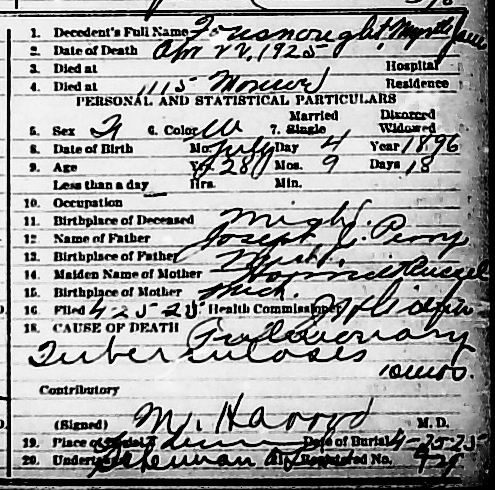 1. Decedent's Full Name Myrtle
2. Date of Death Apr 22, 1925
3. Died at Hospital
4. Died at 1115 Monroe Residence
PERSONAL AND STATISTICAL PARTICULARS
Married Divorced
5. Sex F 6. Color W 7. Single Widowed
8. Date of Birth Mo. July Day 4 Year 1896
9. Age Yrs. 28 Mos. 9 Days 18
Less than a day Hrs. Min.
10. Occupation
11. Birthplace of Deceased Mich.
12. Name of Father Joseph J. Perry
13. Birthplace of Father Mich.
14. Maiden Name of Mother Harriet Russel
15. Birthplace of Mother Mich.
16. Filed 4-25-25. Health Commissioner
18. CAUSE OF DEATH Pulmonary
Tuberculoses
10 mos.
Contributory
(Signed) M. D.
19. Place of Burial Date of Burial 4-25-25
20. Undertaker Registered No.